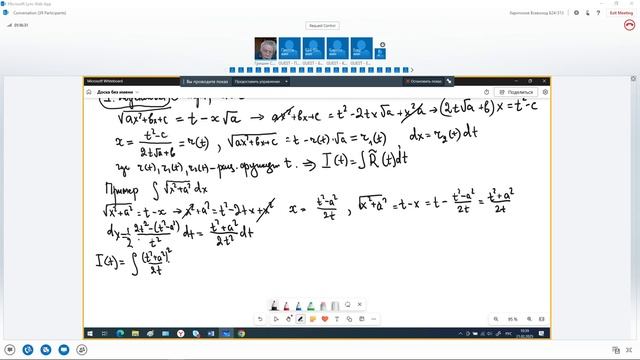 Microsoft Lync Web App
Conversation (39 Participants)
Exit Meeting
Request Control
Microsoft Whiteboard
Вы проводите показ
Предоставить управление
Остановить показ
Доска без имени
Поделиться
√ax²+bx+c = t - x√a → ax²+bx+c = t² - 2tx√a + x²a → (2t√a + b) x = t² - c
x = t²-c / 2t√a+b = r(t), √ax²+bx+c = t - r(t)·√a = r₁(t) dx = r₂(t) dt
где r(t), r₁(t), r₂(t) - рац. функции t. ⇒ I(t) = ∫R̃(t)dt
Пример ∫√x²+a² dx
√x²+a² = t-x → x²+a² = t²-2tx+x² x = t²-a² / 2t, √x²+a² = t-x = t - t²-a² / 2t = t²+a² / 2t
dx = 1/2 · 2t²-(t²-a²) / t² dt = t²+a² / 2t² dt
I(t) = ∫ (t²+a²)² / 2t
95 %
РУС
10:39